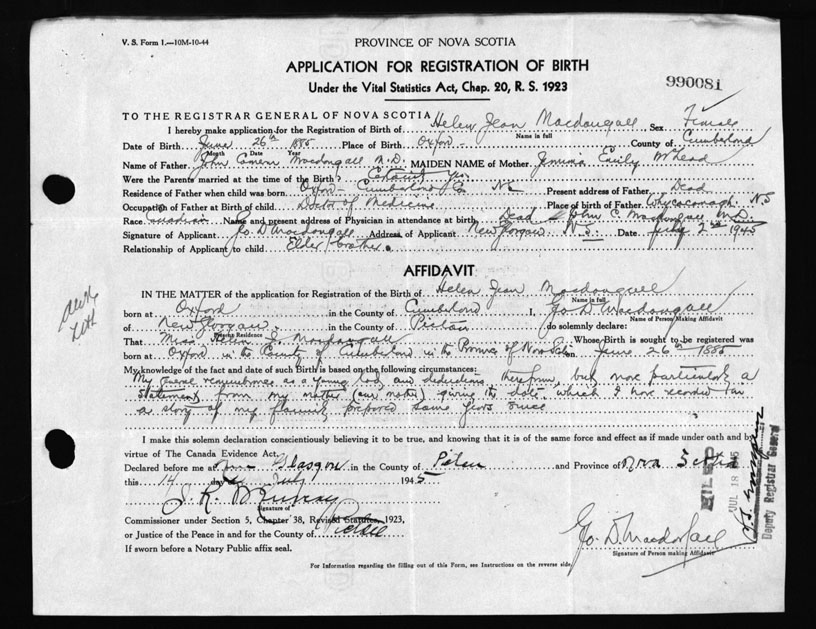 V. S. Form 1.—10M-10-44
PROVINCE OF NOVA SCOTIA
APPLICATION FOR REGISTRATION OF BIRTH
Under the Vital Statistics Act, Chap. 20, R. S. 1923
990081
TO THE REGISTRAR GENERAL OF NOVA SCOTIA
I hereby make application for the Registration of Birth of Helen Jean Macdougall Sex Female
Name in full
Date of Birth June 26th 1885 Place of Birth Oxford County of Cumberland
Month Date Year
Name of Father John Macdougall M.D. MAIDEN NAME of Mother Jemima Emily
Were the Parents married at the time of the Birth? yes
Residence of Father when child was born Oxford Cumberland Co NS Present address of Father Dead
Occupation of Father at Birth of child Doctor of Medicine Place of birth of Father Whycocomagh NS
Race Canadian Name and present address of Physician in attendance at birth Dead John C. Macdougall M.D.
Signature of Applicant Geo. D Macdougall Address of Applicant New Glasgow N.S. Date July 2nd 1945
Relationship of Applicant to child Elder brother
AFFIDAVIT
IN THE MATTER of the application for Registration of the Birth of Helen Jean Macdougall
Name in full
born at Oxford in the County of Cumberland I, Geo D Macdougall
Name of Person Making Affidavit
of New Glasgow in the County of Pictou do solemnly declare:
Present Residence
That Miss Helen J. Macdougall Whose Birth is sought to be registered was
born at Oxford in the County of Cumberland in the Province of Nova Scotia on June 26th 1885
My knowledge of the fact and date of such Birth is based on the following circumstances:
My remembrance as a young boy and deductions therefrom, but more particularly a
statement from my mother (our mother) giving the date which I have recorded in
a story of my family prepared some years since
I make this solemn declaration conscientiously believing it to be true, and knowing that it is of the same force and effect as if made under oath and by
virtue of The Canada Evidence Act.
Declared before me at New Glasgow in the County of Pictou and Province of Nova Scotia
this 14 day of July 1945
Signature of
Commissioner under Section 5, Chapter 38, Revised Statutes, 1923,
or Justice of the Peace in and for the County of Pictou
If sworn before a Notary Public affix seal.
Geo. D. Macdougall
Signature of Person making Affidavit
For Information regarding the filling out of this Form, see Instructions on the reverse side.
FILED
JUL 18 1945
Deputy Registrar General